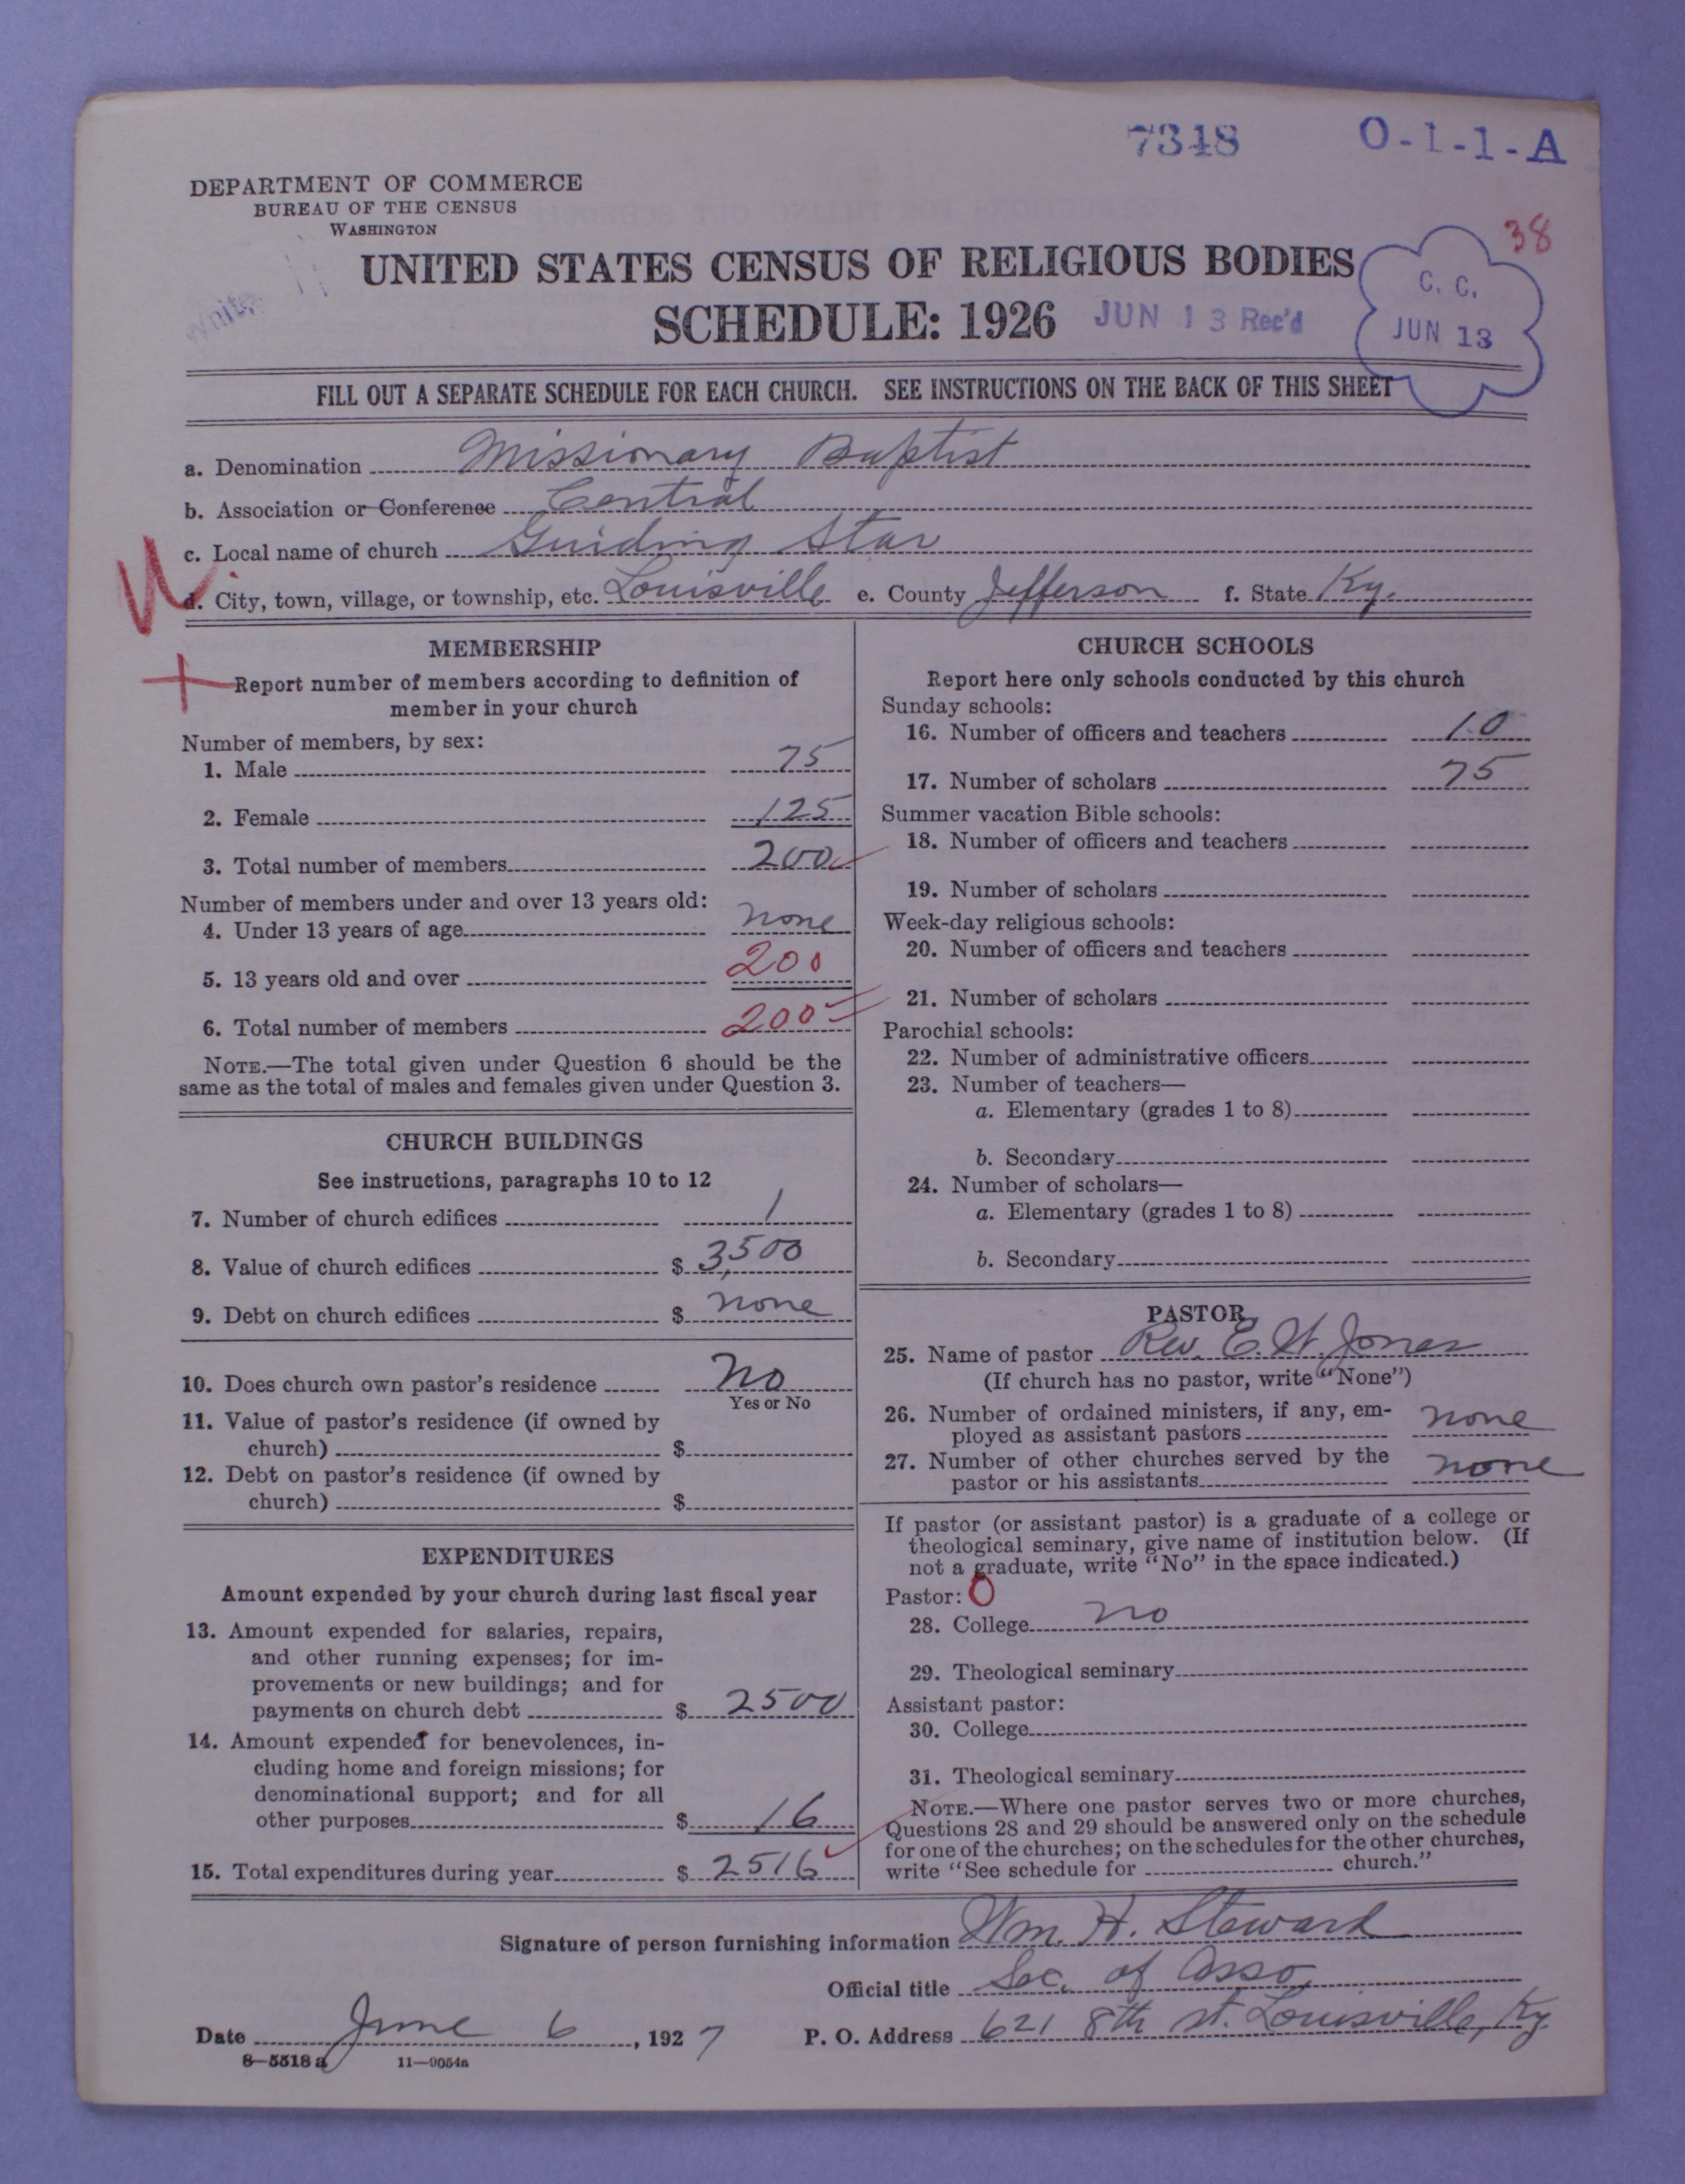 7348
O-1-1-A
DEPARTMENT OF COMMERCE
BUREAU OF THE CENSUS
WASHINGTON
38
UNITED STATES CENSUS OF RELIGIOUS BODIES
SCHEDULE: 1926
JUN 13 Rec'd
C. C.
JUN 13
White
FILL OUT A SEPARATE SCHEDULE FOR EACH CHURCH. SEE INSTRUCTIONS ON THE BACK OF THIS SHEET
a. Denomination Missionary Baptist
b. Association or Conference Central
c. Local name of church Guiding Star
d. City, town, village, or township, etc. Louisville e. County Jefferson f. State Ky.
MEMBERSHIP
Report number of members according to definition of
member in your church
Number of members, by sex:
1. Male 75
2. Female 125
3. Total number of members 200
Number of members under and over 13 years old:
4. Under 13 years of age none
5. 13 years old and over 200
6. Total number of members 200
NOTE.—The total given under Question 6 should be the
same as the total of males and females given under Question 3.
CHURCH BUILDINGS
See instructions, paragraphs 10 to 12
7. Number of church edifices 1
8. Value of church edifices $ 3,500
9. Debt on church edifices $ none
10. Does church own pastor's residence No
Yes or No
11. Value of pastor's residence (if owned by
church) $
12. Debt on pastor's residence (if owned by
church) $
EXPENDITURES
Amount expended by your church during last fiscal year
13. Amount expended for salaries, repairs,
and other running expenses; for im-
provements or new buildings; and for
payments on church debt $ 2500
14. Amount expended for benevolences, in-
cluding home and foreign missions; for
denominational support; and for all
other purposes $ 16
15. Total expenditures during year $ 2516
CHURCH SCHOOLS
Report here only schools conducted by this church
Sunday schools:
16. Number of officers and teachers 10
17. Number of scholars 75
Summer vacation Bible schools:
18. Number of officers and teachers
19. Number of scholars
Week-day religious schools:
20. Number of officers and teachers
21. Number of scholars
Parochial schools:
22. Number of administrative officers
23. Number of teachers—
a. Elementary (grades 1 to 8)
b. Secondary
24. Number of scholars—
a. Elementary (grades 1 to 8)
b. Secondary
PASTOR
25. Name of pastor Rev. E. W. Jones
(If church has no pastor, write "None")
26. Number of ordained ministers, if any, em-
ployed as assistant pastors none
27. Number of other churches served by the
pastor or his assistants none
If pastor (or assistant pastor) is a graduate of a college or
theological seminary, give name of institution below. (If
not a graduate, write "No" in the space indicated.)
Pastor: O
28. College no
29. Theological seminary
Assistant pastor:
30. College
31. Theological seminary
NOTE.—Where one pastor serves two or more churches,
Questions 28 and 29 should be answered only on the schedule
for one of the churches; on the schedules for the other churches,
write "See schedule for church."
Signature of person furnishing information Wm. H. Steward
Official title Sec. of Asso.
Date June 6, 1927 P. O. Address 621 8th st. Louisville, Ky.
8—5518 a 11—9054a